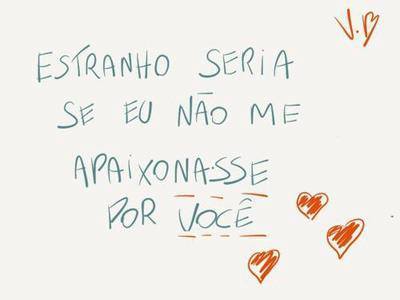 V.B
ESTRANHO SERIA
SE EU NÃO ME
APAIXONASSE
POR VOCÊ